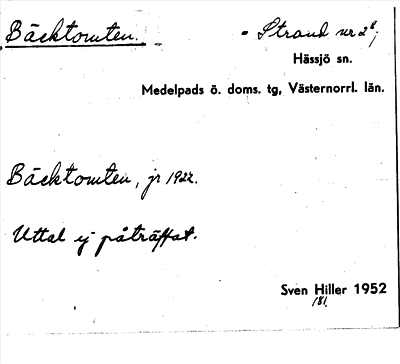 Bäcktomten. = Strand nr 2⁶;
Hässjö sn.
Medelpads ö. doms. tg, Västernorrl. län.
Bäcktomten, jr 1922.
Uttal ej påträffat.
Sven Hiller 1952
181.